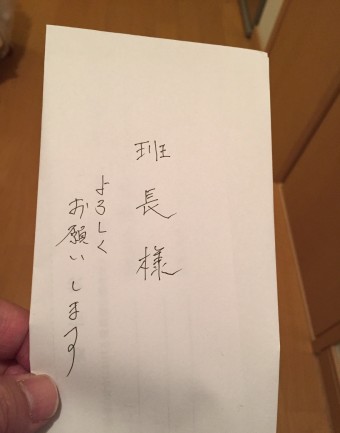 班長様
よろしく
お願いします